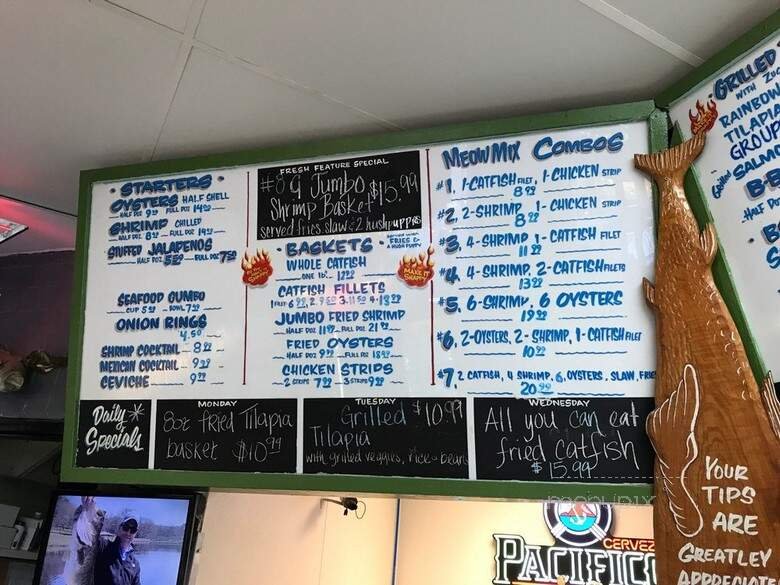 STARTERS
OYSTERS HALF SHELL
HALF DOZ 9.99 FULL DOZ 14.99
SHRIMP CHILLED
HALF DOZ 8.99 FULL DOZ 14.99
STUFFED JALAPENOS
HALF DOZ 5.50 FULL DOZ 7.50
SEAFOOD GUMBO
CUP 5.99 BOWL 7.99
ONION RINGS
4.50
SHRIMP COCKTAIL 8.99
MEXICAN COCKTAIL 9.99
CEVICHE 9.99
FRESH FEATURE SPECIAL
#8 9 Jumbo
Shrimp Basket $15.99
served fries slaw & 2 hushpuppies
BASKETS
FRIES &
WHOLE CATFISH
ONE lb. 12.99
MAKE IT SNAPPY
CATFISH FILLETS
JUMBO FRIED SHRIMP
HALF DOZ 11.99 FULL DOZ 21.99
FRIED OYSTERS
HALF DOZ 9.99 FULL DOZ 18.99
CHICKEN STRIPS
2 STRIPS 7.99 3 STRIPS 9.99
MEOWMIX COMBOS
#1. 1-CATFISH FILET, 1-CHICKEN STRIP
8.99
#2. 2-SHRIMP 1-CHICKEN STRIP
8.99
#3. 4-SHRIMP 1-CATFISH FILET
11.99
#4. 4-SHRIMP, 2-CATFISH FILETS
13.99
#5. 6-SHRIMP, 6 OYSTERS
19.99
#6. 2-OYSTERS, 2-SHRIMP, 1-CATFISH FILET
10.99
#7. 2 CATFISH, 4 SHRIMP, 6, OYSTERS, SLAW, FRIES
20.99
Daily
Specials
MONDAY
8oz fried Tilapia
basket $10.99
TUESDAY
Grilled $10.99
Tilapia
with grilled veggies, rice & beans
WEDNESDAY
All you can eat
fried catfish
$15.99
GRILLED
WITH
RAINBOW
TILAPIA
GROUP
Grilled SALMO
HALF DOZ
YOUR
TIPS
ARE
GREATLEY
APPRECIATE
CERVEZ
PACIFICO